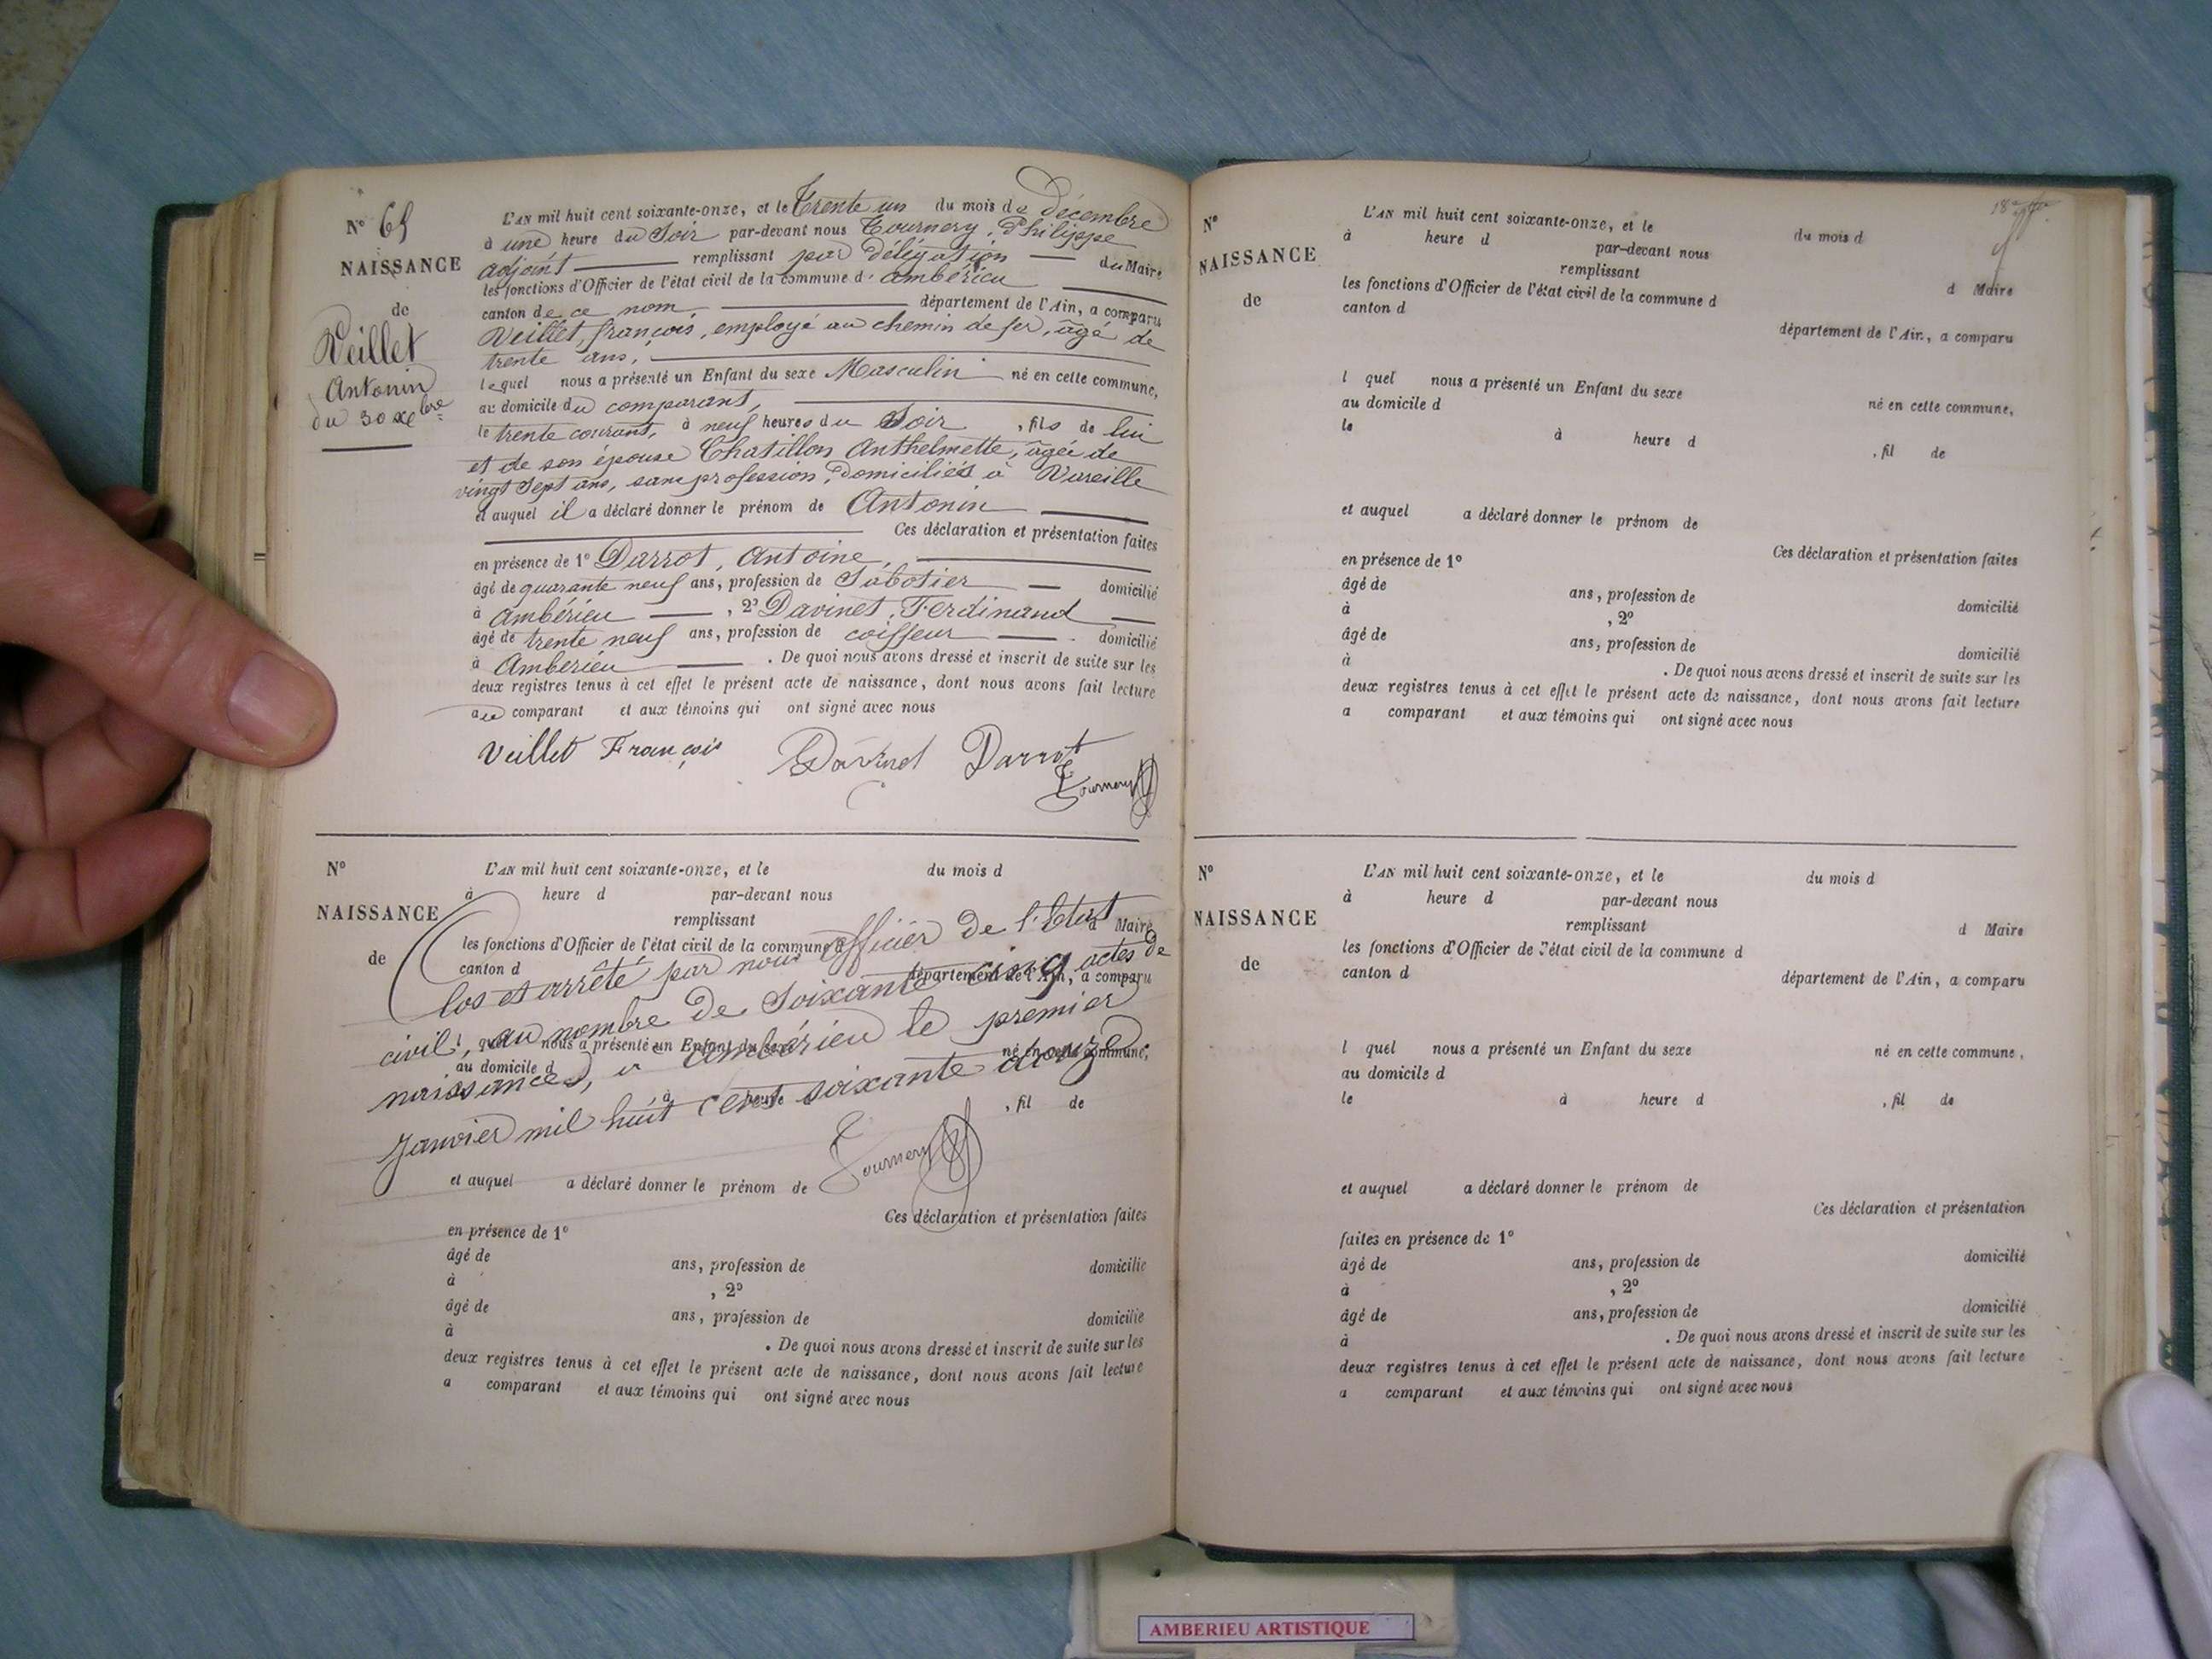 N° 65
NAISSANCE
de
Veillet
Antonin
du 30 xbre
L'AN mil huit cent soixante-onze, et le Trente un du mois de décembre
à une heure du Soir par-devant nous Tournery, Philippe
adjoint remplissant par délégation du Maire
les fonctions d'Officier de l'état civil de la commune d'ambérieu
canton de ce nom département de l'Ain, a comparu
Veillet, françois, employé au chemin de fer, âgé de
trente ans,
lequel nous a présenté un Enfant du sexe Masculin né en cette commune,
au domicile du comparant,
le trente courant, à neuf heures du Soir, fils de lui
et de son épouse Chatillon Anthelmette, âgée de
vingt Sept ans, sans profession, domiciliés à Vareille
et auquel il a déclaré donner le prénom de Antonin
Ces déclaration et présentation faites
en présence de 1° Darrot, Antoine,
âgé de quarante neuf ans, profession de Sabotier domicilié
à ambérieu, 2° Davinet, Ferdinand
âgé de trente neuf ans, profession de coiffeur domicilié
à Ambérieu. De quoi nous avons dressé et inscrit de suite sur les
deux registres tenus à cet effet le présent acte de naissance, dont nous avons fait lecture
au comparant et aux témoins qui ont signé avec nous
Veillet François Davinet Darrot
Tournery
N°
NAISSANCE
de
L'AN mil huit cent soixante-onze, et le du mois d
à heure d par-devant nous
remplissant d Maire
les fonctions d'Officier de l'état civil de la commune d
canton d département de l'Ain, a comparu
l quel nous a présenté un Enfant du sexe né en cette commune,
au domicile d
à heure , fil de
Clos et arrêté par nous officier de l'Etat
civil, au nombre de Soixante cinq actes de
naissances, à ambérieu le premier
Janvier mil huit cent soixante douze
Tournery
et auquel a déclaré donner le prénom de
Ces déclaration et présentation faites
en présence de 1°
âgé de ans, profession de domicilié
à , 2°
âgé de ans, profession de domicilié
à . De quoi nous avons dressé et inscrit de suite sur les
deux registres tenus à cet effet le présent acte de naissance, dont nous avons fait lecture
a comparant et aux témoins qui ont signé avec nous
N°
NAISSANCE
de
L'AN mil huit cent soixante-onze, et le du mois d
à heure d par-devant nous
remplissant d Maire
les fonctions d'Officier de l'état civil de la commune d
canton d département de l'Ain, a comparu
l quel nous a présenté un Enfant du sexe né en cette commune,
au domicile d
le à heure d , fil de
et auquel a déclaré donner le prénom de
Ces déclaration et présentation faites
en présence de 1°
âgé de ans, profession de domicilié
à , 2°
âgé de ans, profession de domicilié
à . De quoi nous avons dressé et inscrit de suite sur les
deux registres tenus à cet effet le présent acte de naissance, dont nous avons fait lecture
a comparant et aux témoins qui ont signé avec nous
N°
NAISSANCE
de
L'AN mil huit cent soixante-onze, et le du mois d
à heure d par-devant nous
remplissant d Maire
les fonctions d'Officier de l'état civil de la commune d
canton d département de l'Ain, a comparu
l quel nous a présenté un Enfant du sexe né en cette commune,
au domicile d
le à heure d , fil de
et auquel a déclaré donner le prénom de
Ces déclaration et présentation
faites en présence de 1°
âgé de ans, profession de domicilié
à , 2°
âgé de ans, profession de domicilié
à . De quoi nous avons dressé et inscrit de suite sur les
deux registres tenus à cet effet le présent acte de naissance, dont nous avons fait lecture
a comparant et aux témoins qui ont signé avec nous
AMBERIEU ARTISTIQUE